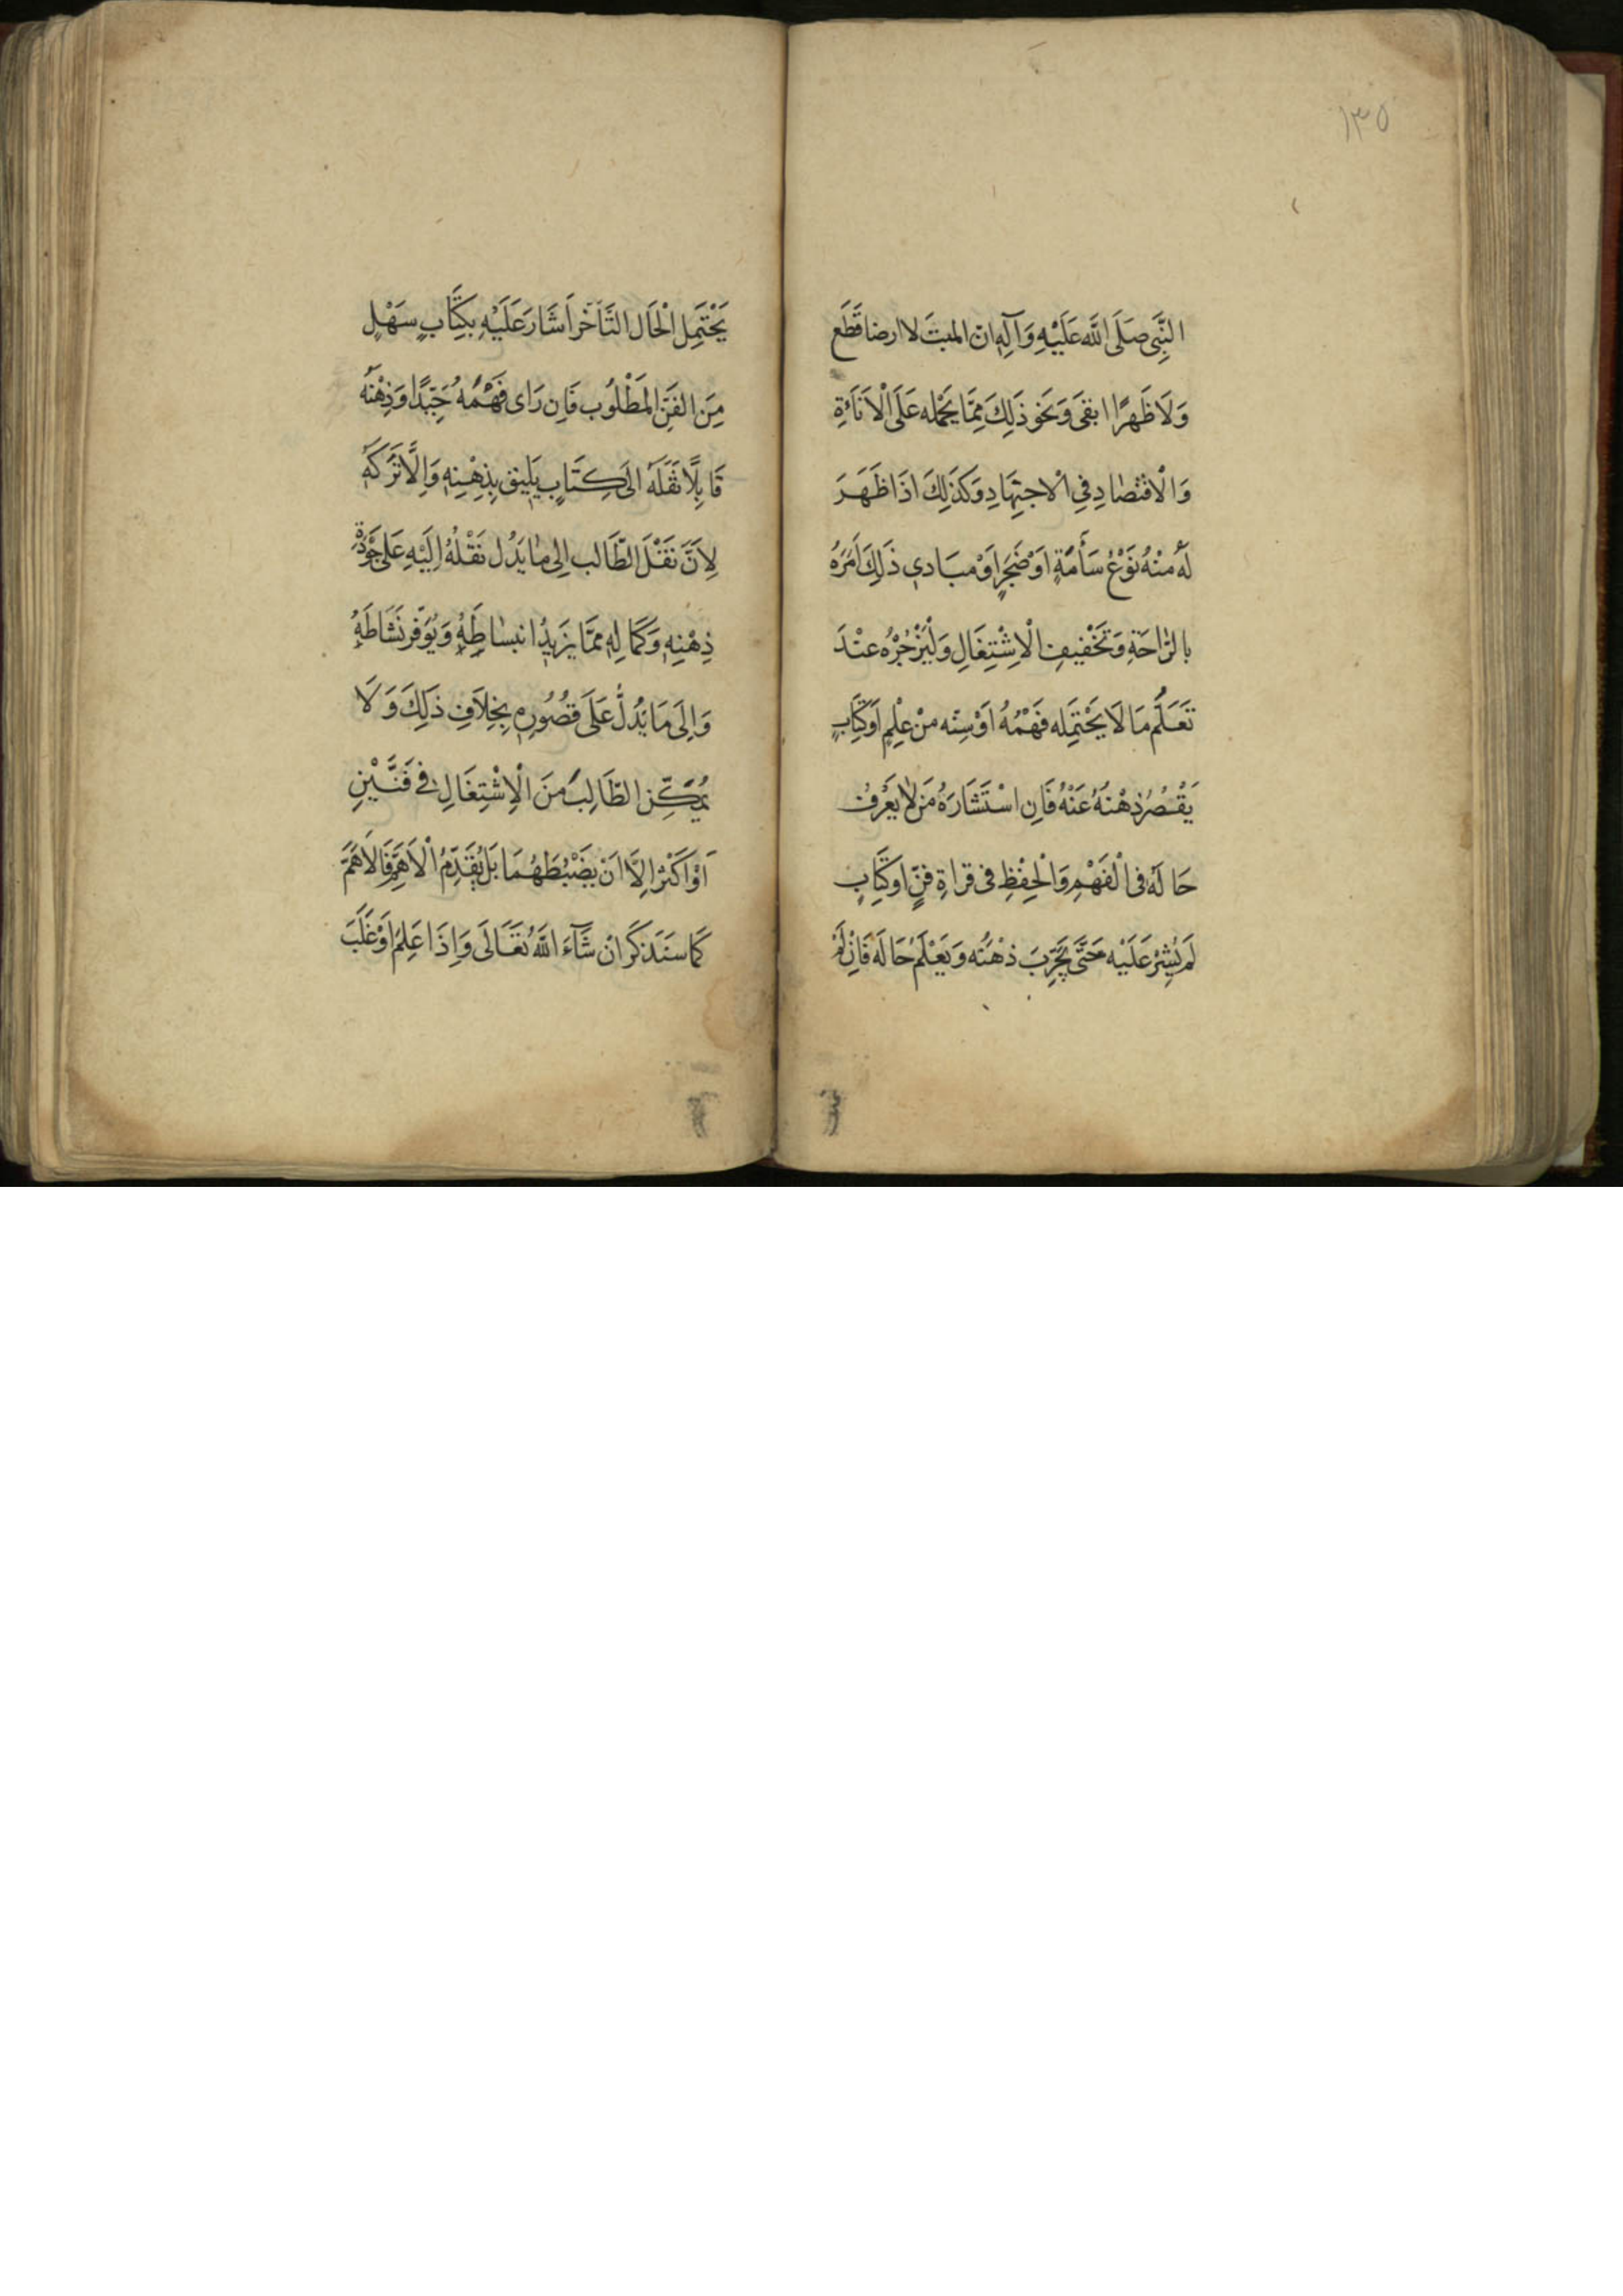 ١٣٥
النَّبِيِّ صَلَّى اللَّه عَلَيْهِ وَآلِهِ انّ المنبتَ لا ارضا قَطَعَ
وَلَا ظَهرًا ابقىَ وَنَحَو ذَلِكَ مِمَّا يَحْمله عَلَى الْاَنَاءَةِ
وَالْاقْتصَادِ فِي الْاجتِهَادِ وَكَذَلِكَ اذَا ظَهَرَ
لَهُ منْهُ نَوْعُ سَأمَةٍ اَوْ ضَجَرٍ اَوْ مبَادي ذَلِكَ اَمَرَهُ
بالرَّاحَةِ وَتَخْفيفِ الْاِشْتِغَالِ وَلْيَزْجُرْهُ عنْدَ
تَعَلُّمِ مَا لَا يَحْتَمِله فَهْمُهُ اَوْ سِنّه منْ عِلْمٍ اَوْ كِتَابٍ
يَقْصُرُ ذِهْنُهُ عَنْهُ فَاِن اسْتَشَارَهُ مَنْ لَا يَعْرفُ
حَالَهُ فى الْفَهْمِ وَالْحِفْظِ فى قراءةِ فنٍّ اَوْ كِتَابٍ
لَمْ يُشِرْ عَلَيْه حَتَّى يُجَرِّبَ ذهْنَهُ وَيَعْلَمَ حَالَهُ فَاِنْ لَمْ
يَحْتَمِل الْحَال التَّأَخّر اَشَارَ عَلَيْهِ بِكِتَابٍ سَهْلٍ
مِنَ الفَنِّ المَطْلُوبِ فَاِن رَاى فَهْمُهُ جَيّدًا وَذِهْنَهُ
قَابِلًا نَقَلَهُ اِلَى كِتَابٍ يَليقُ بِذِهْنِهِ وَاِلَّا تَرَكَهُ
لِاَنَّ نَقْلَ الطَّالب اِلى مَا يَدُل نَقْلُهُ اِلَيْهِ عَلى جَوْدَةِ
ذِهْنِهِ وَكَمَالِهِ ممّا يَزيدُ انبسَاطَهُ وَيُوَفّر نَشَاطَهُ
وَاِلَى مَا يَدُلُّ عَلَى قصُورِهِ بِخِلَافِ ذَلِكَ وَلَا
يُمَكِّن الطَّالِبَ منَ الْاِشْتِغَالِ فى فَنَّيْنِ
اَوْ اَكْثَر اِلَّا اَنْ يَضْبُطَهُمَا بَلْ يُقَدِّمُ الْاَهَمَّ فَالْاَهَمَّ
كَمَا سَنَذكَرُ انْ شَآءَ اللَّهُ تَعَالَى وَاِذَا عَلِمَ اَوْ غَلَبَ